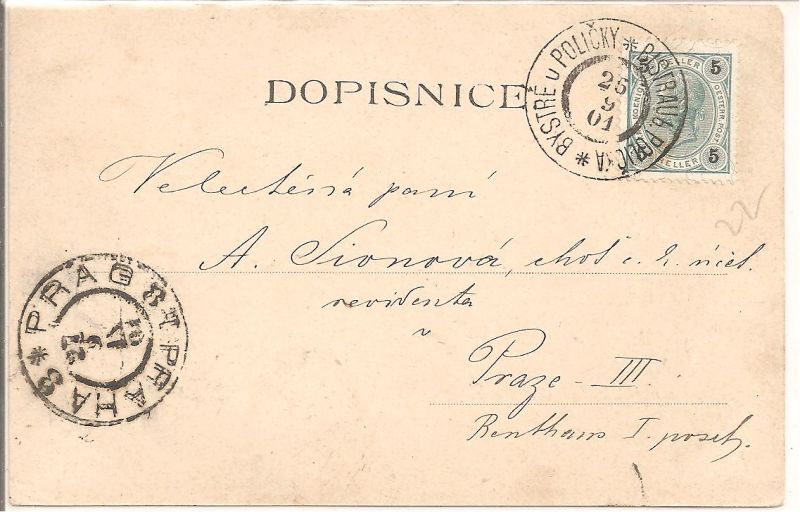 DOPISNICE
BYSTRÉ u POLIČKY * BISTRAU b. POLIČKA *
25
9
01
5 HELLER 5
5 HELLER 5
Velectěná paní
A. Sionová, choť c. k. účet.
revidenta
v
Praze - III
Renthaus I. posch.
PRAG 8 T PRAHA 8 *
27
9
IV
01
22